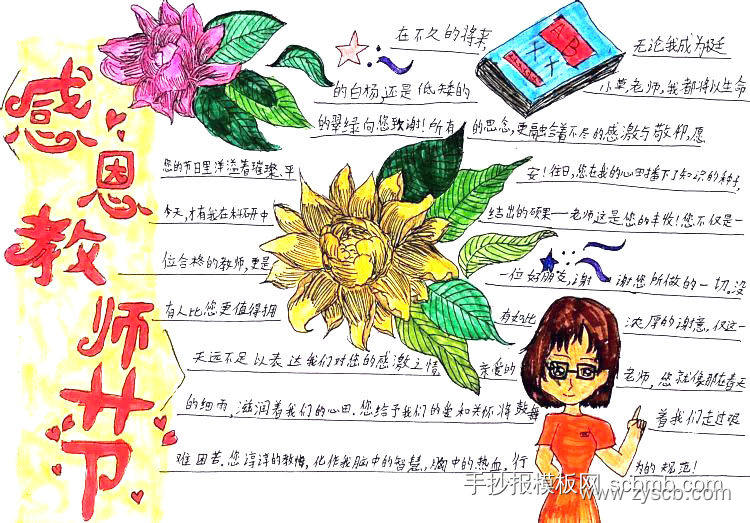 感恩教师节
在不久的将来 无论我成为挺
的白杨,还是低矮的 小草,老师,我都将以生命
的翠绿向您致谢!所有的思念,更融合着不尽的感激与敬仰,愿
您的节日里洋溢着璀璨、平安!往日,您在我的心田播下了知识的种子,
今天,才有我在科研中结出的硕果——老师,这是您的丰收!您不仅是一
位合格的教师,更是一位好朋友,谢谢您所做的一切。没
有人比您更值得拥有如此浓厚的谢意,仅这一
天远不足以表达我们对您的感激之情。亲爱的老师,您就像那春天
的细雨,滋润着我们的心田。您给予我们的爱和关怀将鼓舞着我们走过艰
难困苦。您谆谆的教悔,化作我脑中的智慧,胸中的热血,行为的规范!
手抄报模板网 scbmb.com
www.zyscb.com